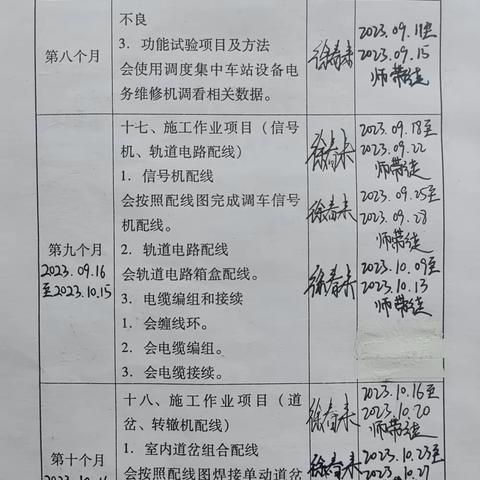 不良
3．功能试验项目及方法
会使用调度集中车站设备电
务维修机调看相关数据。
第八个月
徐春来
2023.09.11至
2023.09.15
师带徒
十七、施工作业项目（信号
机、轨道电路配线）
1．信号机配线
会按照配线图完成调车信号
机配线。
2．轨道电路配线
会轨道电路箱盒配线。
3．电缆编组和接续
1．会缠线环。
2．会电缆编组。
3．会电缆接续。
第九个月
2023.09.16
至2023.10.15
徐春来
2023.09.18至
2023.09.22
师带徒
徐春来
2023.09.25至
2023.09.28
师带徒
徐春来
2023.10.09至
2023.10.13
师带徒
十八、施工作业项目（道
岔、转辙机配线）
1．室内道岔组合配线
会按照配线图焊接单动道岔
第十个月
徐春来
2023.10.16至
2023.10.20
师带徒
徐春来
2023.10.23至
2023.10.27